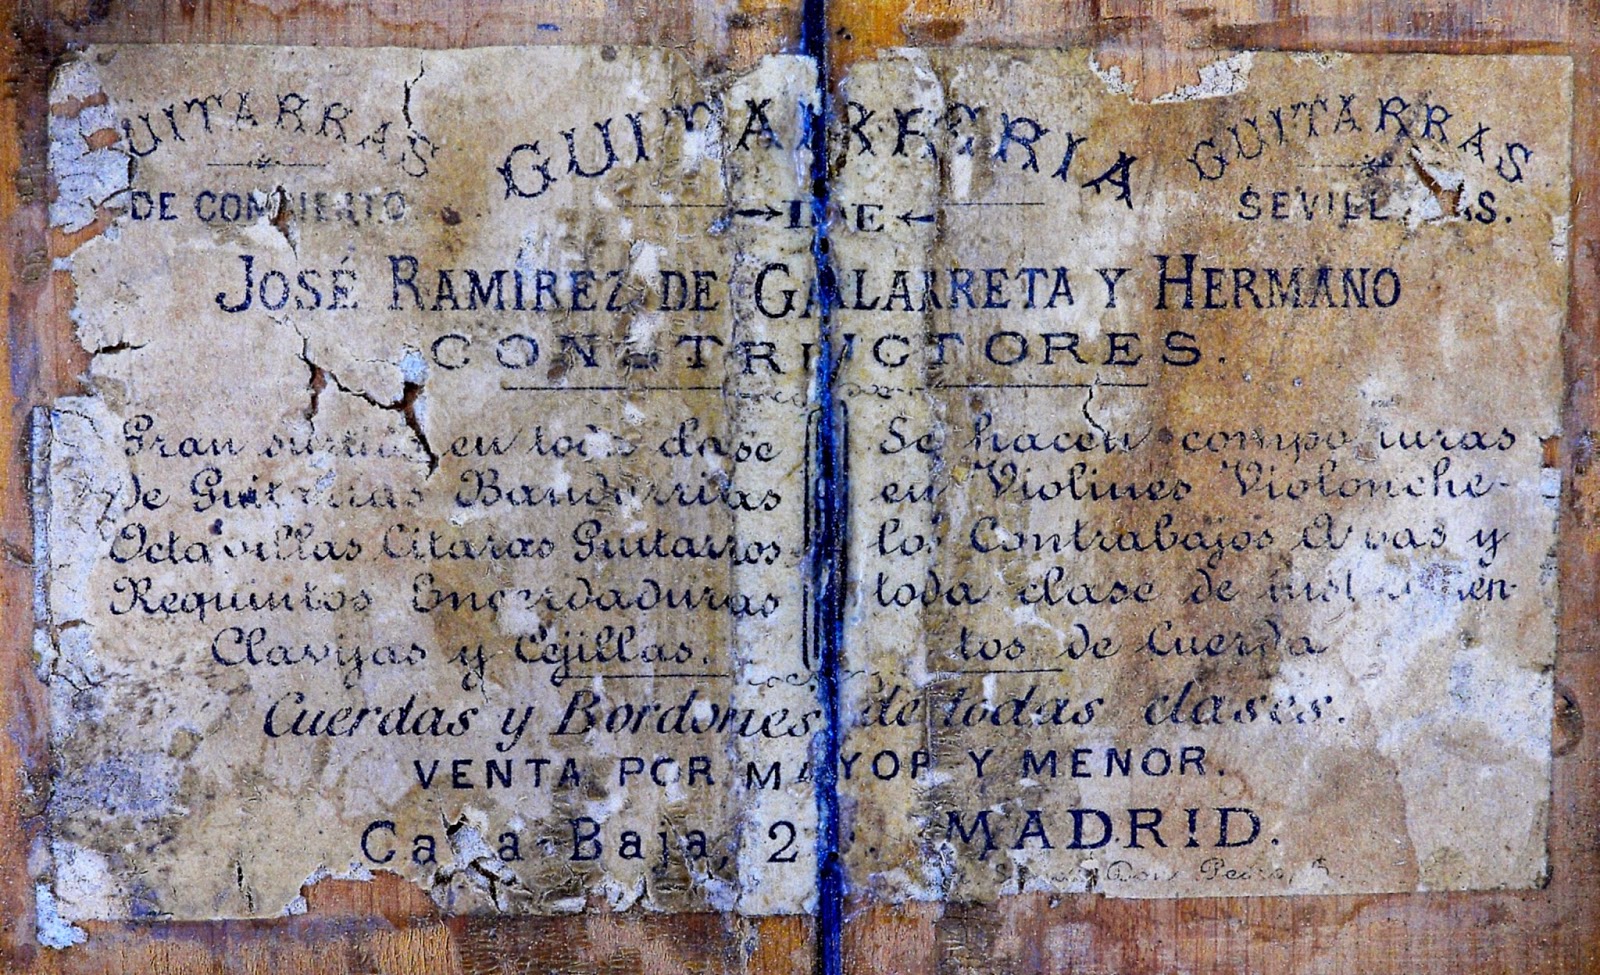 GUITARRAS
DE CONCIERTO
GUITARRERIA
DE
GUITARRAS
SEVILLANAS.
JOSÉ RAMÍREZ DE GALARRETA Y HERMANO
CONSTRUCTORES.
Gran surtido en toda clase
de Guitarras Bandurrias
Octavillas Citaras Guitarros
Requintos Encordaduras
Clavijas y Cejillas.
Se hacen composturas
en Violines Violonche-
los Contrabajos Arpas y
toda clase de instrumen-
tos de Cuerda
Cuerdas y Bordones de todas clases.
VENTA POR MAYOR Y MENOR.
Cava Baja, 2 MADRID.
Don Pedro,